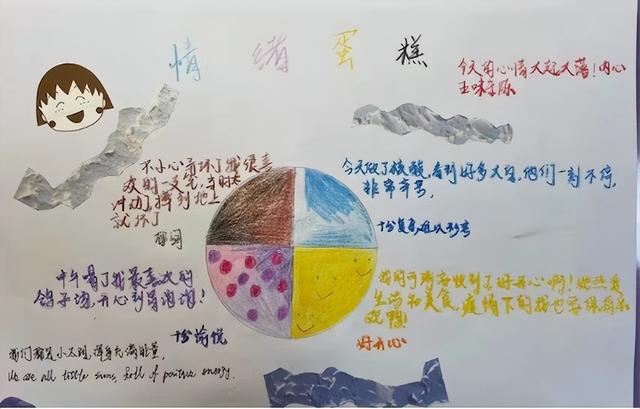 情绪蛋糕
今天的心情大起大落!内心
五味杂陈
不小心弄坏了我很喜
欢的一支笔,当时太
冲动了摔到地上
就坏了
郁闷
今天做了核酸,看到好多大白,他们一刻不停,
非常辛苦。
十分复杂难以形容
中午喝了我最喜欢的
鸽子汤,开心到冒泡泡!
十分愉悦
收到了好开心啊!
生活和美食,疫情下的我也要保持乐
观鸭!
好开心
我们都是小太阳,浑身充满能量。
We are all little suns, full of positive energy.